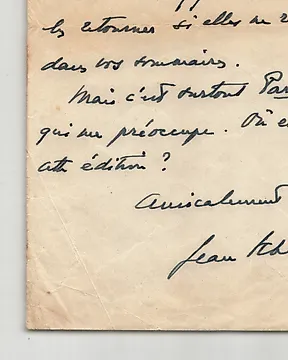 les retourner si elles ne
dans vos sommaires.
Mais c'est surtout Par
qui me préoccupe. Où e
cette édition ?
Amicalement
Jean